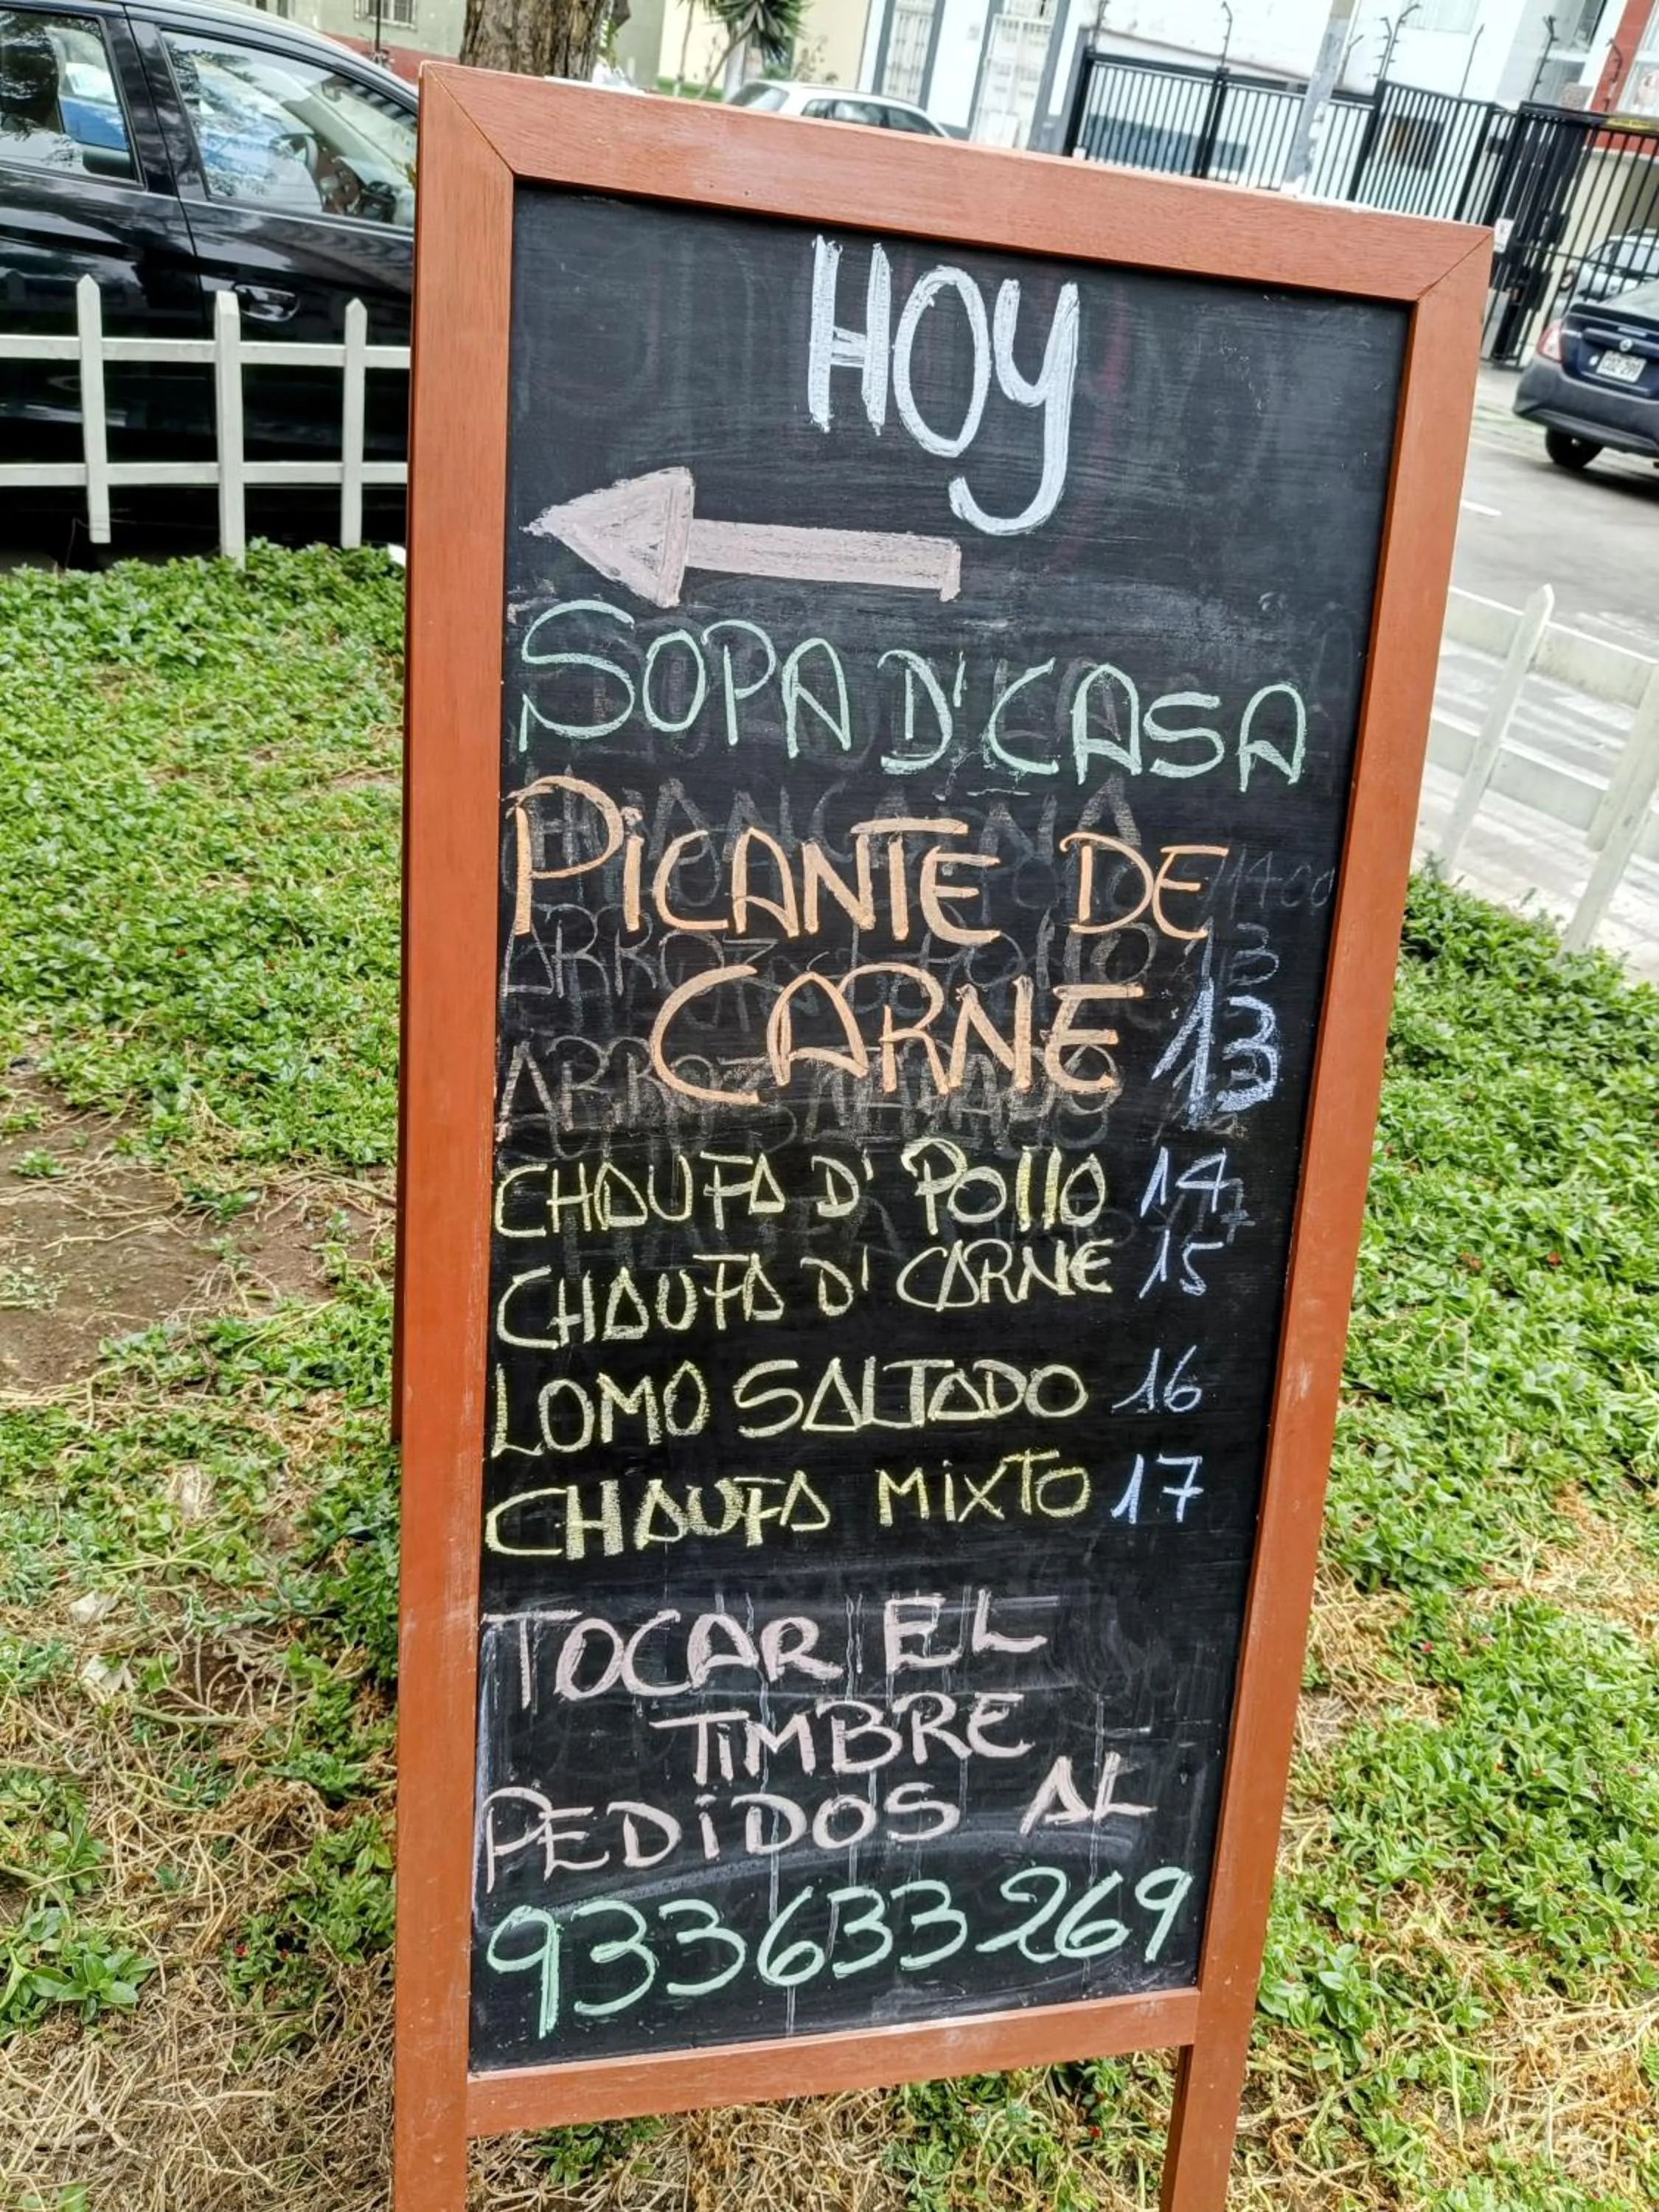 HOY
SOPA D'CASA
PICANTE DE
CARNE 13
CHAUFA D' POLLO 14
CHAUFA D' CARNE 15
LOMO SALTADO 16
CHAUFA MIXTO 17
TOCAR EL
TIMBRE
PEDIDOS AL
933633269